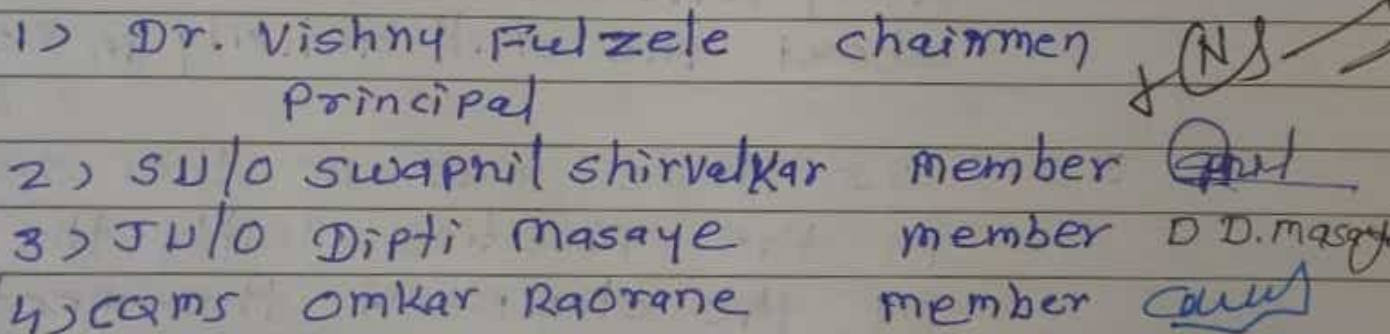 1) Dr. Vishny Fulzele chairmen
Principal
2) SU/O Swapnil Shirvalkar member
3) JU/O Dipti masaye member D D. masay
4) CQms Omkar Raorane member